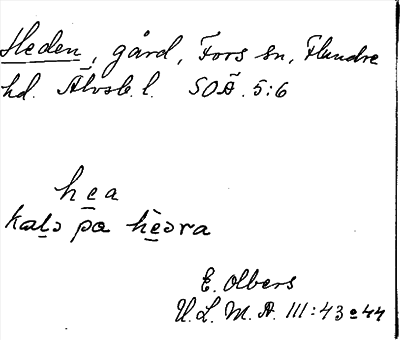 Heden, gård, Fors sn, Flundre
hd. Älvsb. l. SOÄ. 5:6
hea
kalə pa hèəra
E. Olbers
U. L. M. A. III:43 o 44